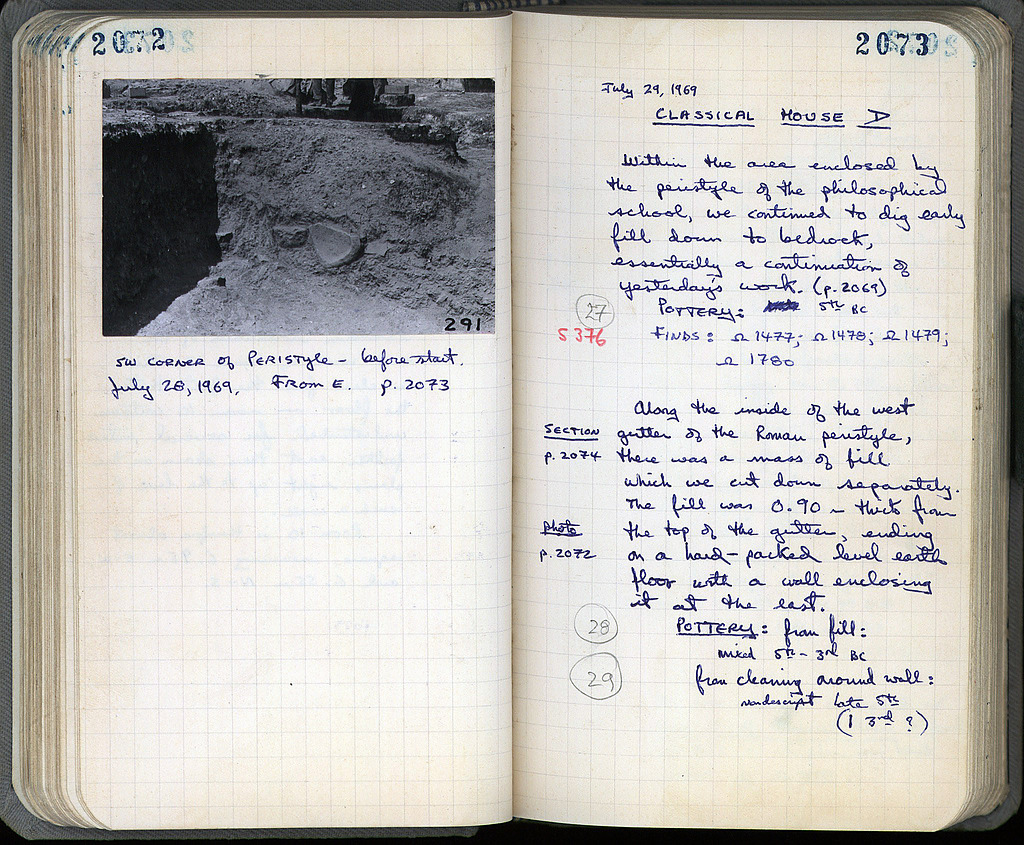 2072
291
SW CORNER OF PERISTYLE - before start.
July 28, 1969. FROM E. p. 2073
2073
July 29, 1969
CLASSICAL HOUSE D
Within the area enclosed by
the peristyle of the philosophical
school, we continued to dig early
fill down to bedrock,
essentially a continuation of
yesterday's work. (p. 2069)
27
POTTERY: 5th BC
5376
FINDS: Ω 1477; Ω 1478; Ω 1479;
Ω 1780
Along the inside of the west
SECTION
gutter of the Roman peristyle,
p. 2074
there was a mass of fill
which we cut down separately.
The fill was 0.90 m thick from
photo
the top of the gutter, ending
p. 2072
on a hard-packed level earth
floor with a wall enclosing
it at the east.
28
POTTERY: from fill:
mixed 5th - 3rd BC
29
from cleaning around wall:
nondescript late 5th
(1 3rd ?)